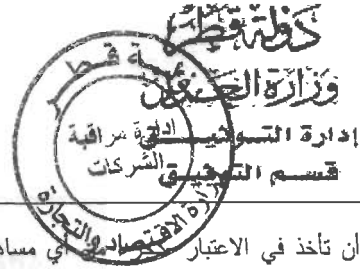 دولة قطر
وزارة العدل
إدارة التوثيق
قسم التوثيق
إدارة مراقبة
الشركات
وزارة الاقتصاد والتجارة
أن تأخذ في الاعتبار أي